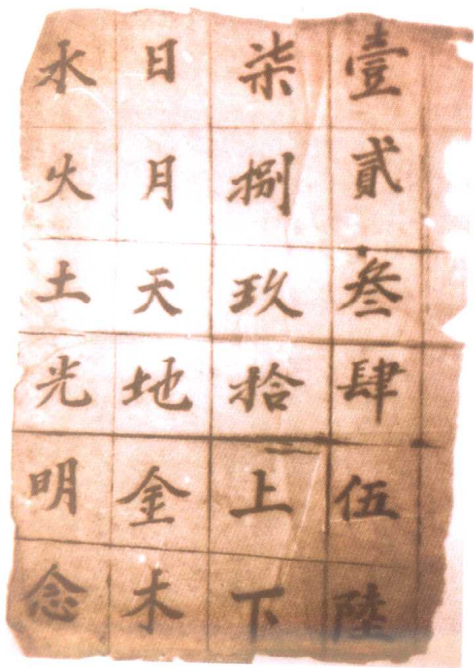 壹貳叁肆伍陸
柒捌玖拾上下
日月天地金木
水火土光明念